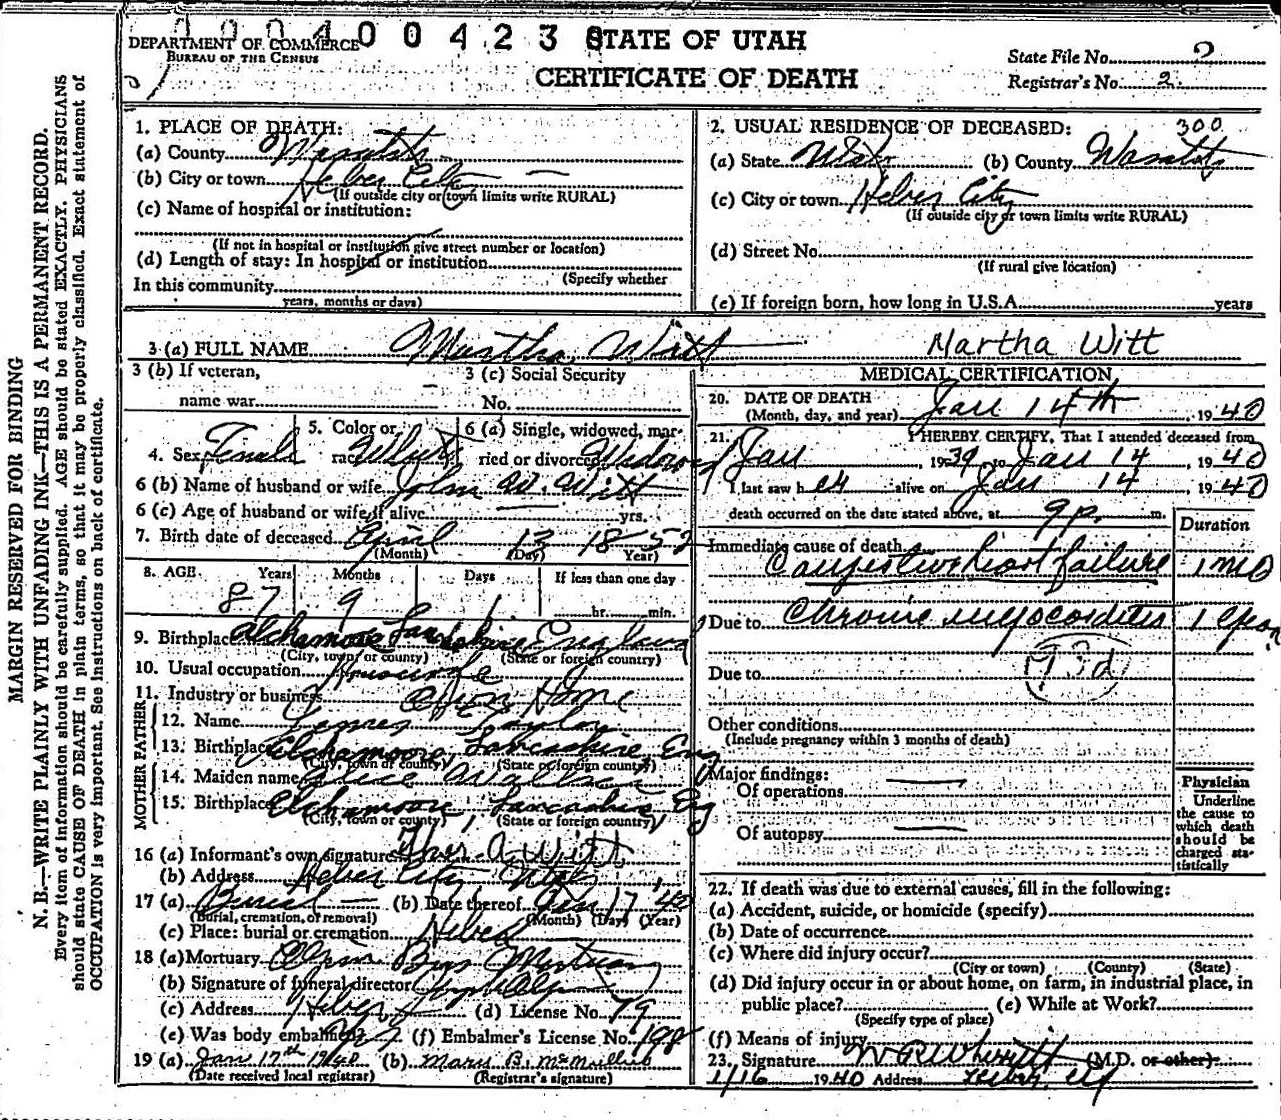 DEPARTMENT OF COMMERCE
BUREAU OF THE CENSUS
STATE OF UTAH
CERTIFICATE OF DEATH
State File No. 2
Registrar's No. 2
MARGIN RESERVED FOR BINDING
N. B.—WRITE PLAINLY WITH UNFADING INK—THIS IS A PERMANENT RECORD.
Every item of information should be carefully supplied. AGE should be stated EXACTLY. PHYSICIANS
should state CAUSE OF DEATH in plain terms, so that it may be properly classified. Exact statement of
OCCUPATION is very important. See instructions on back of certificate.
1. PLACE OF DEATH:
(a) County Wasatch
(b) City or town Heber City —
(If outside city or town limits write RURAL)
(c) Name of hospital or institution:
(If not in hospital or institution give street number or location)
(d) Length of stay: In hospital or institution
(Specify whether
In this community
years, months or days)
2. USUAL RESIDENCE OF DECEASED: 300
(a) State Utah (b) County Wasatch
(c) City or town Heber City
(If outside city or town limits write RURAL)
(d) Street No.
(If rural give location)
(e) If foreign born, how long in U.S.A. years
3 (a) FULL NAME Martha Witt Martha Witt
3 (b) If veteran,
name war —
3 (c) Social Security
No. —
4. Sex Female
5. Color or
race White
6 (a) Single, widowed, mar-
ried or divorced Widowed
6 (b) Name of husband or wife John W. Witt
6 (c) Age of husband or wife if alive — yrs.
7. Birth date of deceased April 13 1852
(Month) (Day) Year)
8. AGE Years Months Days If less than one day
87 9 1 hr. min.
9. Birthplace Lancashire England
(City, town or county) (State or foreign country)
10. Usual occupation Housewife
11. Industry or business Own Home
FATHER
12. Name James Taylor
13. Birthplace Lancashire Eng
(City, town or county) (State or foreign country)
MOTHER
14. Maiden name Alice
15. Birthplace Lancashire Eng
(City, town or county) (State or foreign country)
16 (a) Informant's own signature Thos. A. Witt
(b) Address Heber City Utah
17 (a) Burial (b) Date thereof Jan 17 40
(Burial, cremation, or removal) (Month) (Day) (Year)
(c) Place: burial or cremation Heber
18 (a) Mortuary Olpin Bros Mortuary
(b) Signature of funeral director
(c) Address Heber (d) License No. 79
(e) Was body embalmed (f) Embalmer's License No. 198
19 (a) Jan 17th 1940 (b) Mary B. McMillin
(Date received local registrar) (Registrar's signature)
MEDICAL CERTIFICATION
20. DATE OF DEATH
(Month, day, and year) Jan 14th, 1940
21. I HEREBY CERTIFY, That I attended deceased from
Jan, 1939 to Jan 14, 1940
I last saw her alive on Jan 14, 1940
death occurred on the date stated above, at 9 p. m.
Duration
Immediate cause of death
Congestive heart failure 1 mo
Due to Chronic myocarditis 1 year
93d
Due to
Other conditions
(Include pregnancy within 3 months of death)
Major findings:
Of operations —
Of autopsy —
Physician
Underline
the cause to
which death
should be
charged sta-
tistically
22. If death was due to external causes, fill in the following:
(a) Accident, suicide, or homicide (specify)
(b) Date of occurrence
(c) Where did injury occur?
(City or town) (County) (State)
(d) Did injury occur in or about home, on farm, in industrial place, in
public place? (e) While at Work?
(Specify type of place)
(f) Means of injury
23. Signature (M.D. or other)
1/16 1940 Address